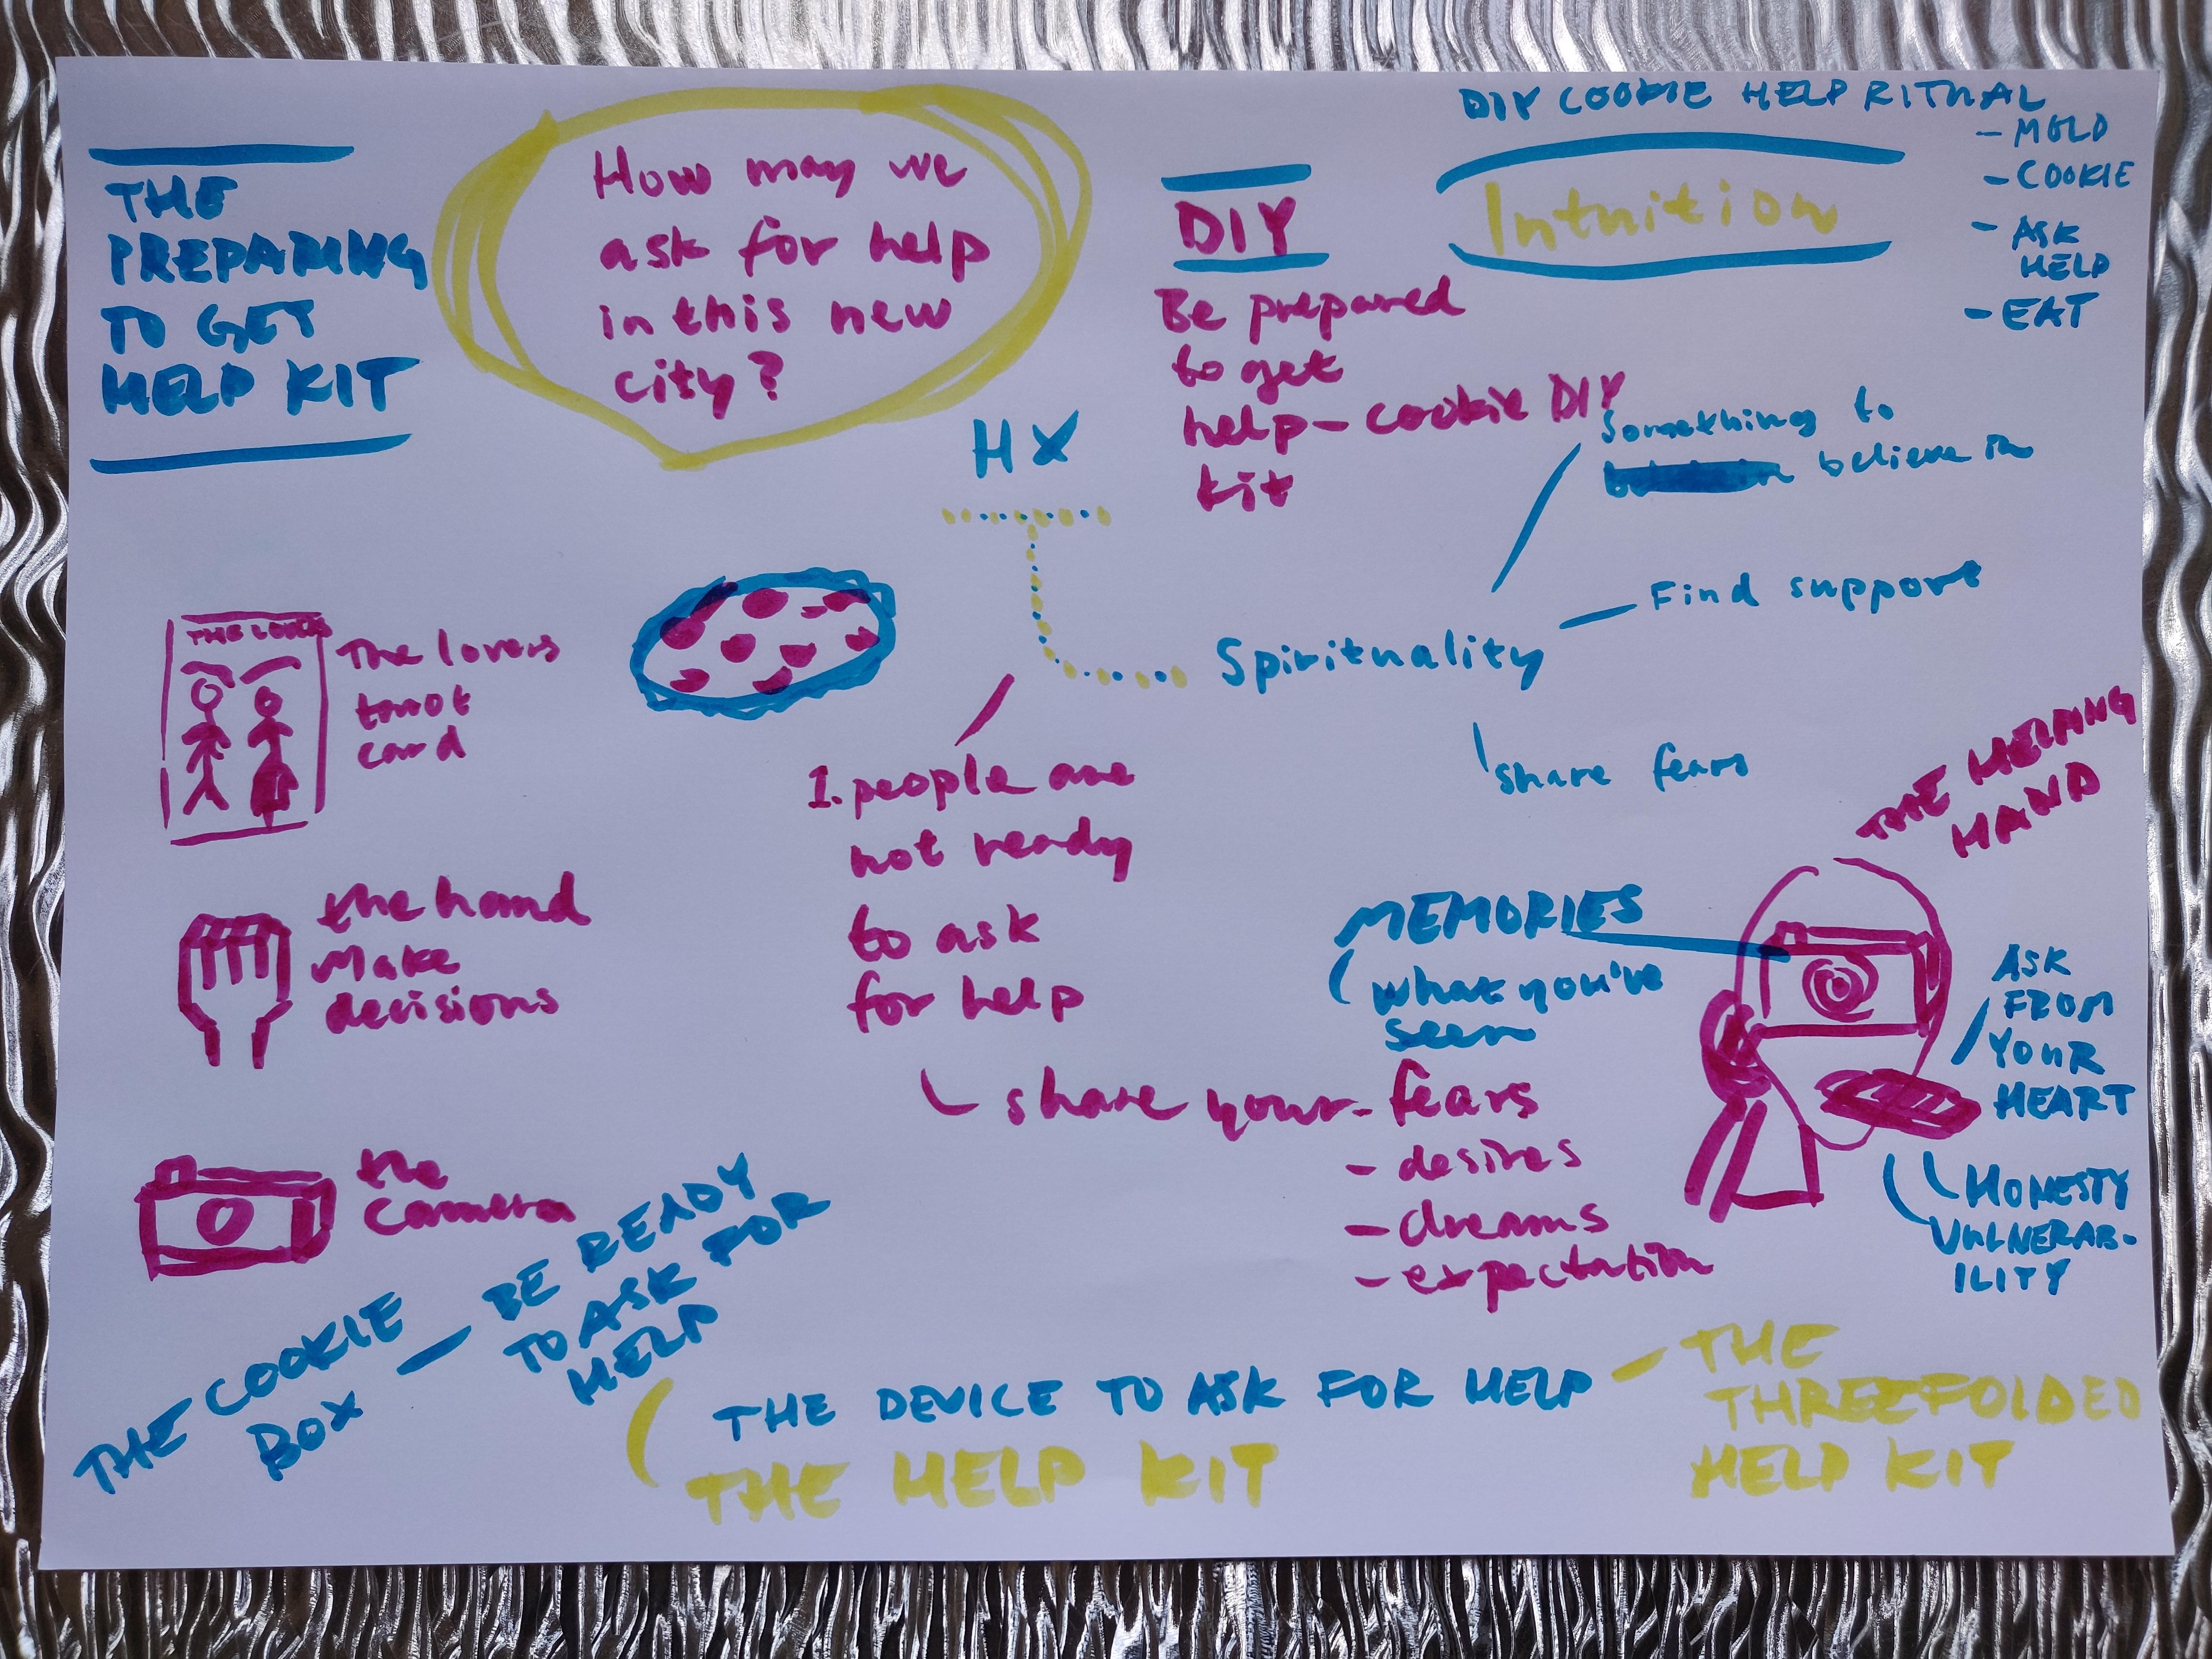 THE
PREPARING
TO GET
HELP KIT
How may we
ask for help
in this new
city?
HX
DIY
Be prepared
to get
help - cookie DIY
kit
DIY COOKIE HELP RITUAL
- MOLD
- COOKIE
- ASK
HELP
- EAT
Intuition
Something to
believe in
Find support
Spirituality
share fears
THE LOVERS
The lovers
tarot
card
the hand
Make
decisions
the
Camera
1. people are
not ready
to ask
for help
share your - fears
- desires
- dreams
- expectation
MEMORIES
what you've
seen
THE HELPING
HAND
ASK
FROM
YOUR
HEART
HONESTY
VULNERAB-
ILITY
THE COOKIE
BOX
- BE READY
TO ASK FOR
HELP
THE DEVICE TO ASK FOR HELP
THE HELP KIT
- THE
THREEFOLDED
HELP KIT